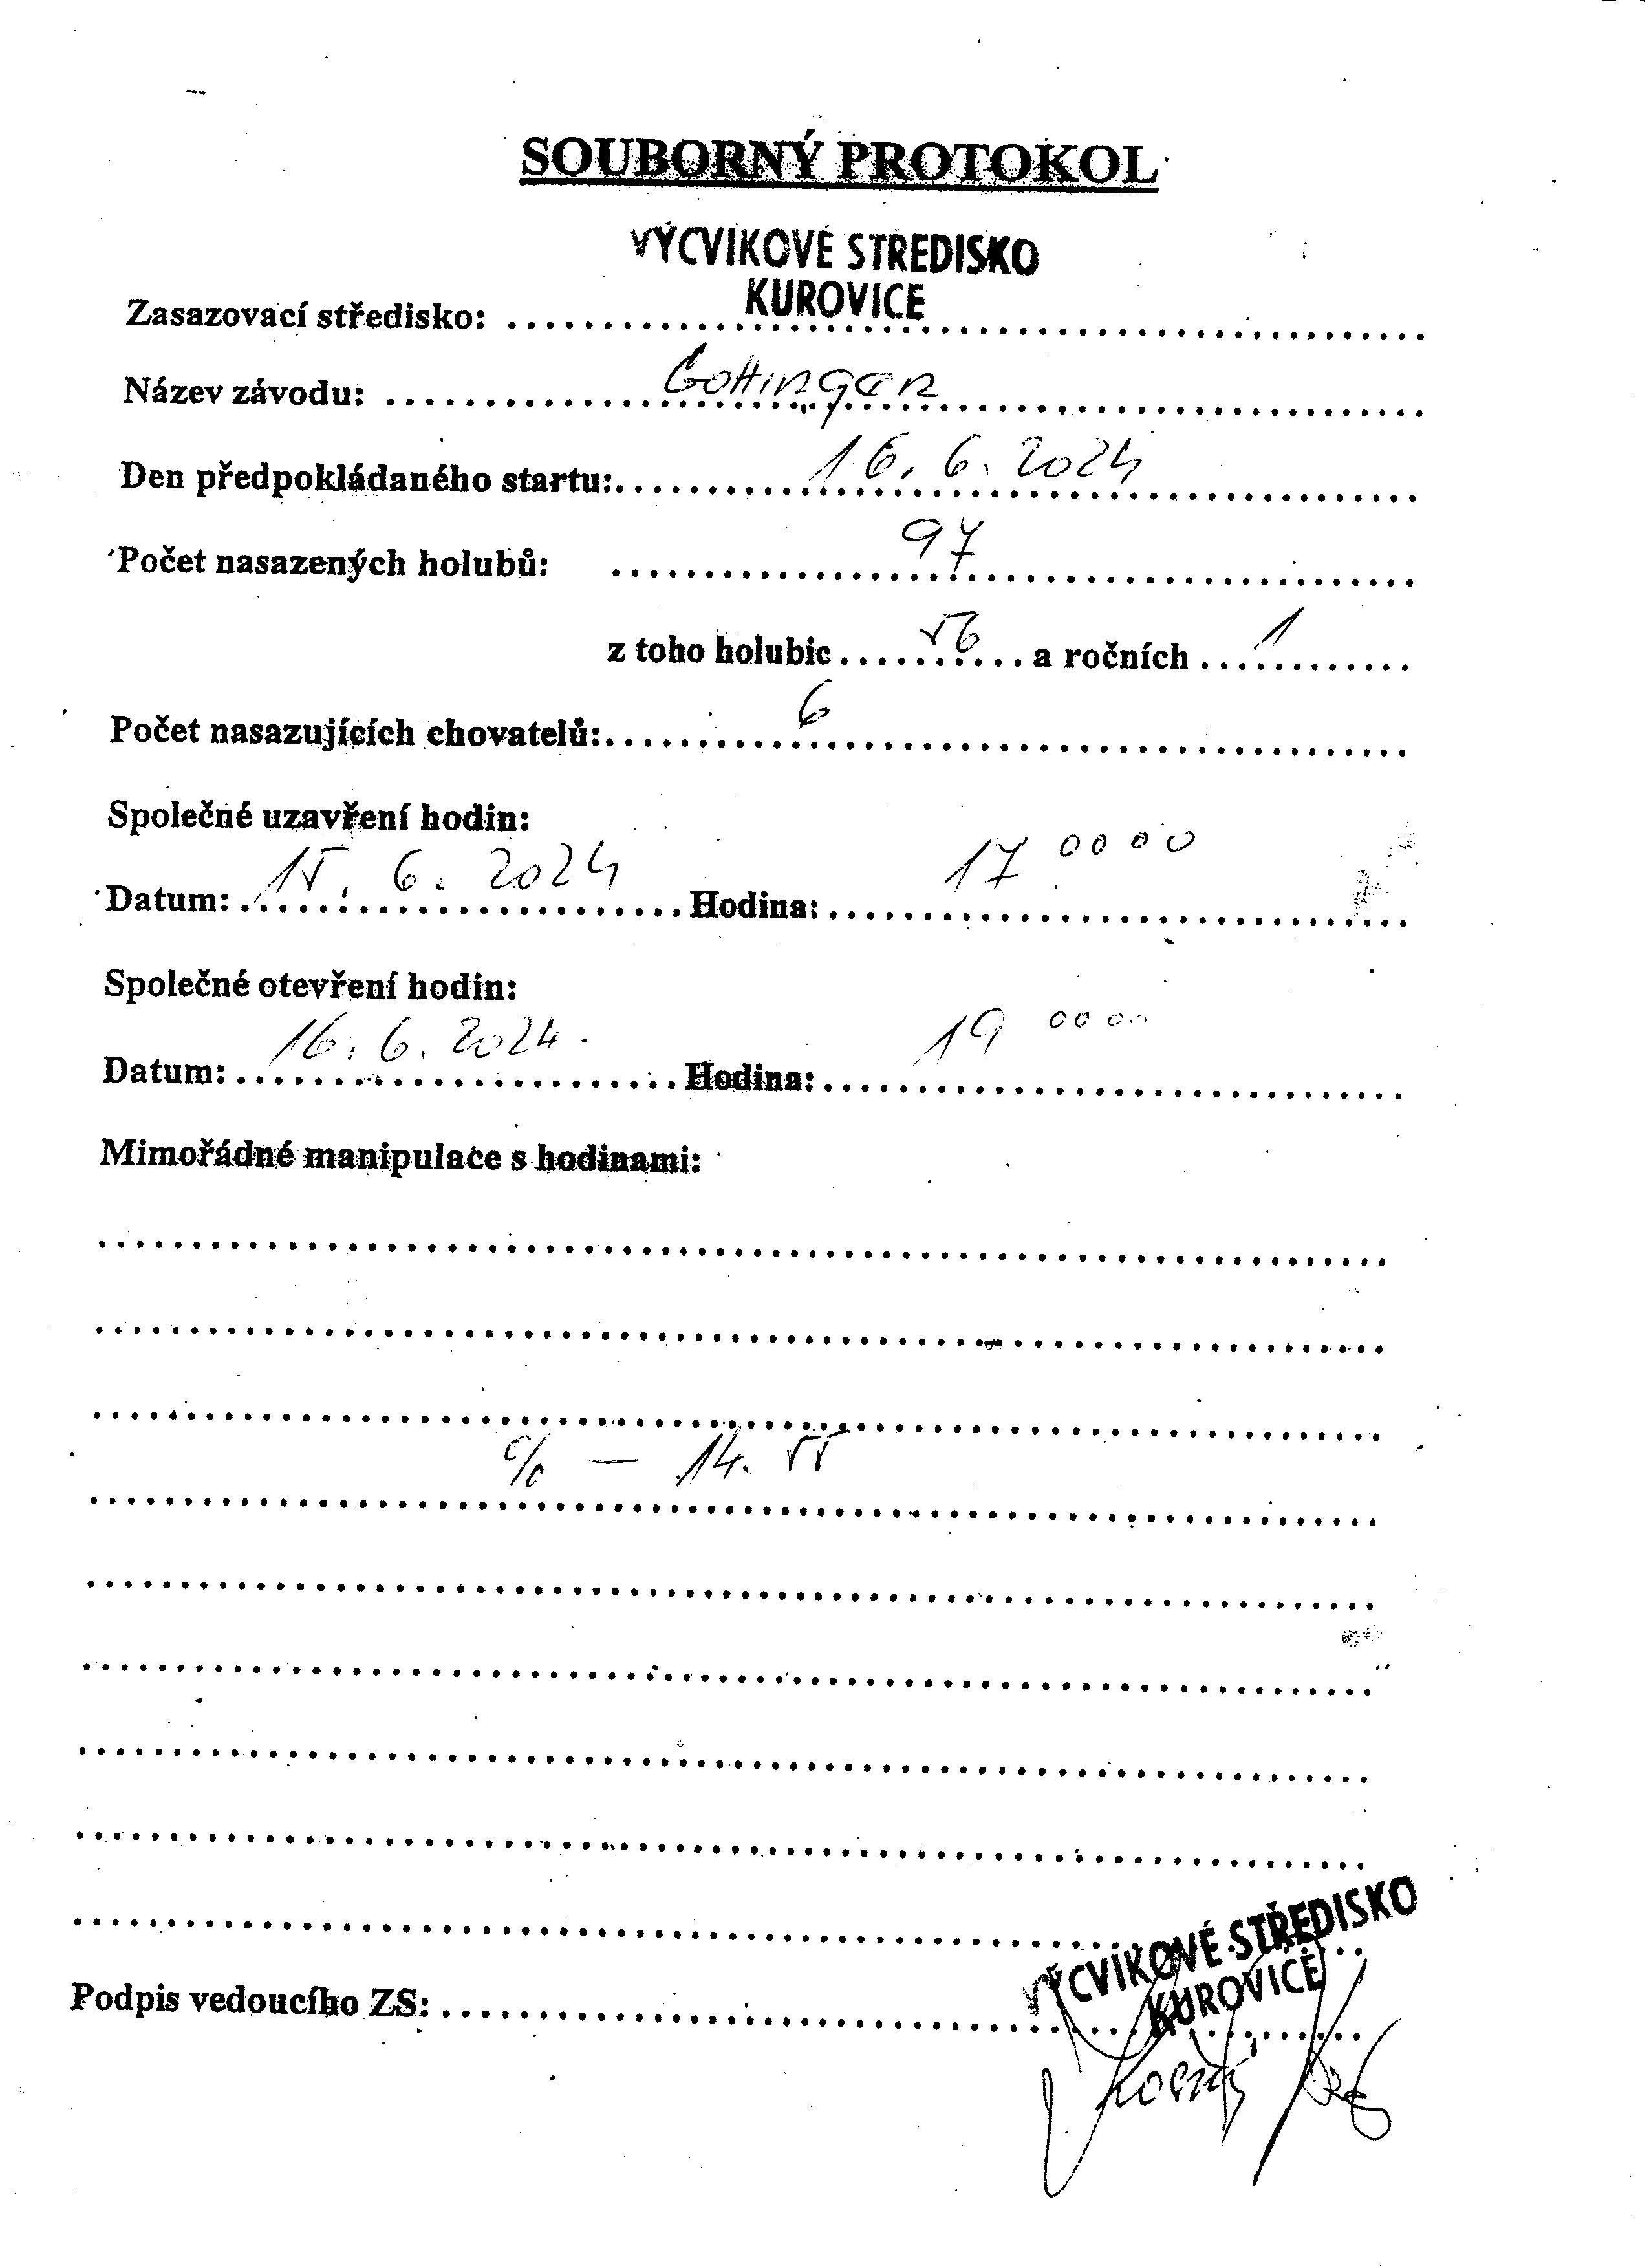 SOUBORNÝ PROTOKOL
VÝCVIKOVÉ STŘEDISKO
KUROVICE
Zasazovací středisko:
Název závodu: Gottingen
Den předpokládaného startu: 16. 6. 2024
Počet nasazených holubů: 97
z toho holubic 56 a ročních 1
Počet nasazujících chovatelů: 6
Společné uzavření hodin:
Datum: 15. 6. 2024 Hodina: 17 00 00
Společné otevření hodin:
Datum: 16. 6. 2024. Hodina: 19 00 00
Mimořádné manipulace s hodinami:
% — 14. 55
VÝCVIKOVÉ STŘEDISKO
KUROVICE
Podpis vedoucího ZS: